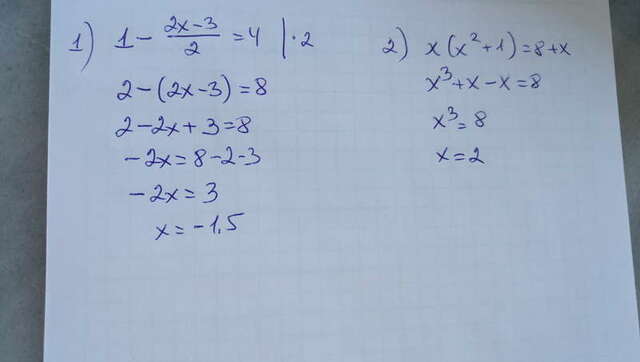 1) 1 - (2x-3)/2 = 4 | · 2
2 - (2x-3) = 8
2 - 2x + 3 = 8
-2x = 8 - 2 - 3
-2x = 3
x = -1,5
2) x(x² + 1) = 8 + x
x³ + x - x = 8
x³ = 8
x = 2